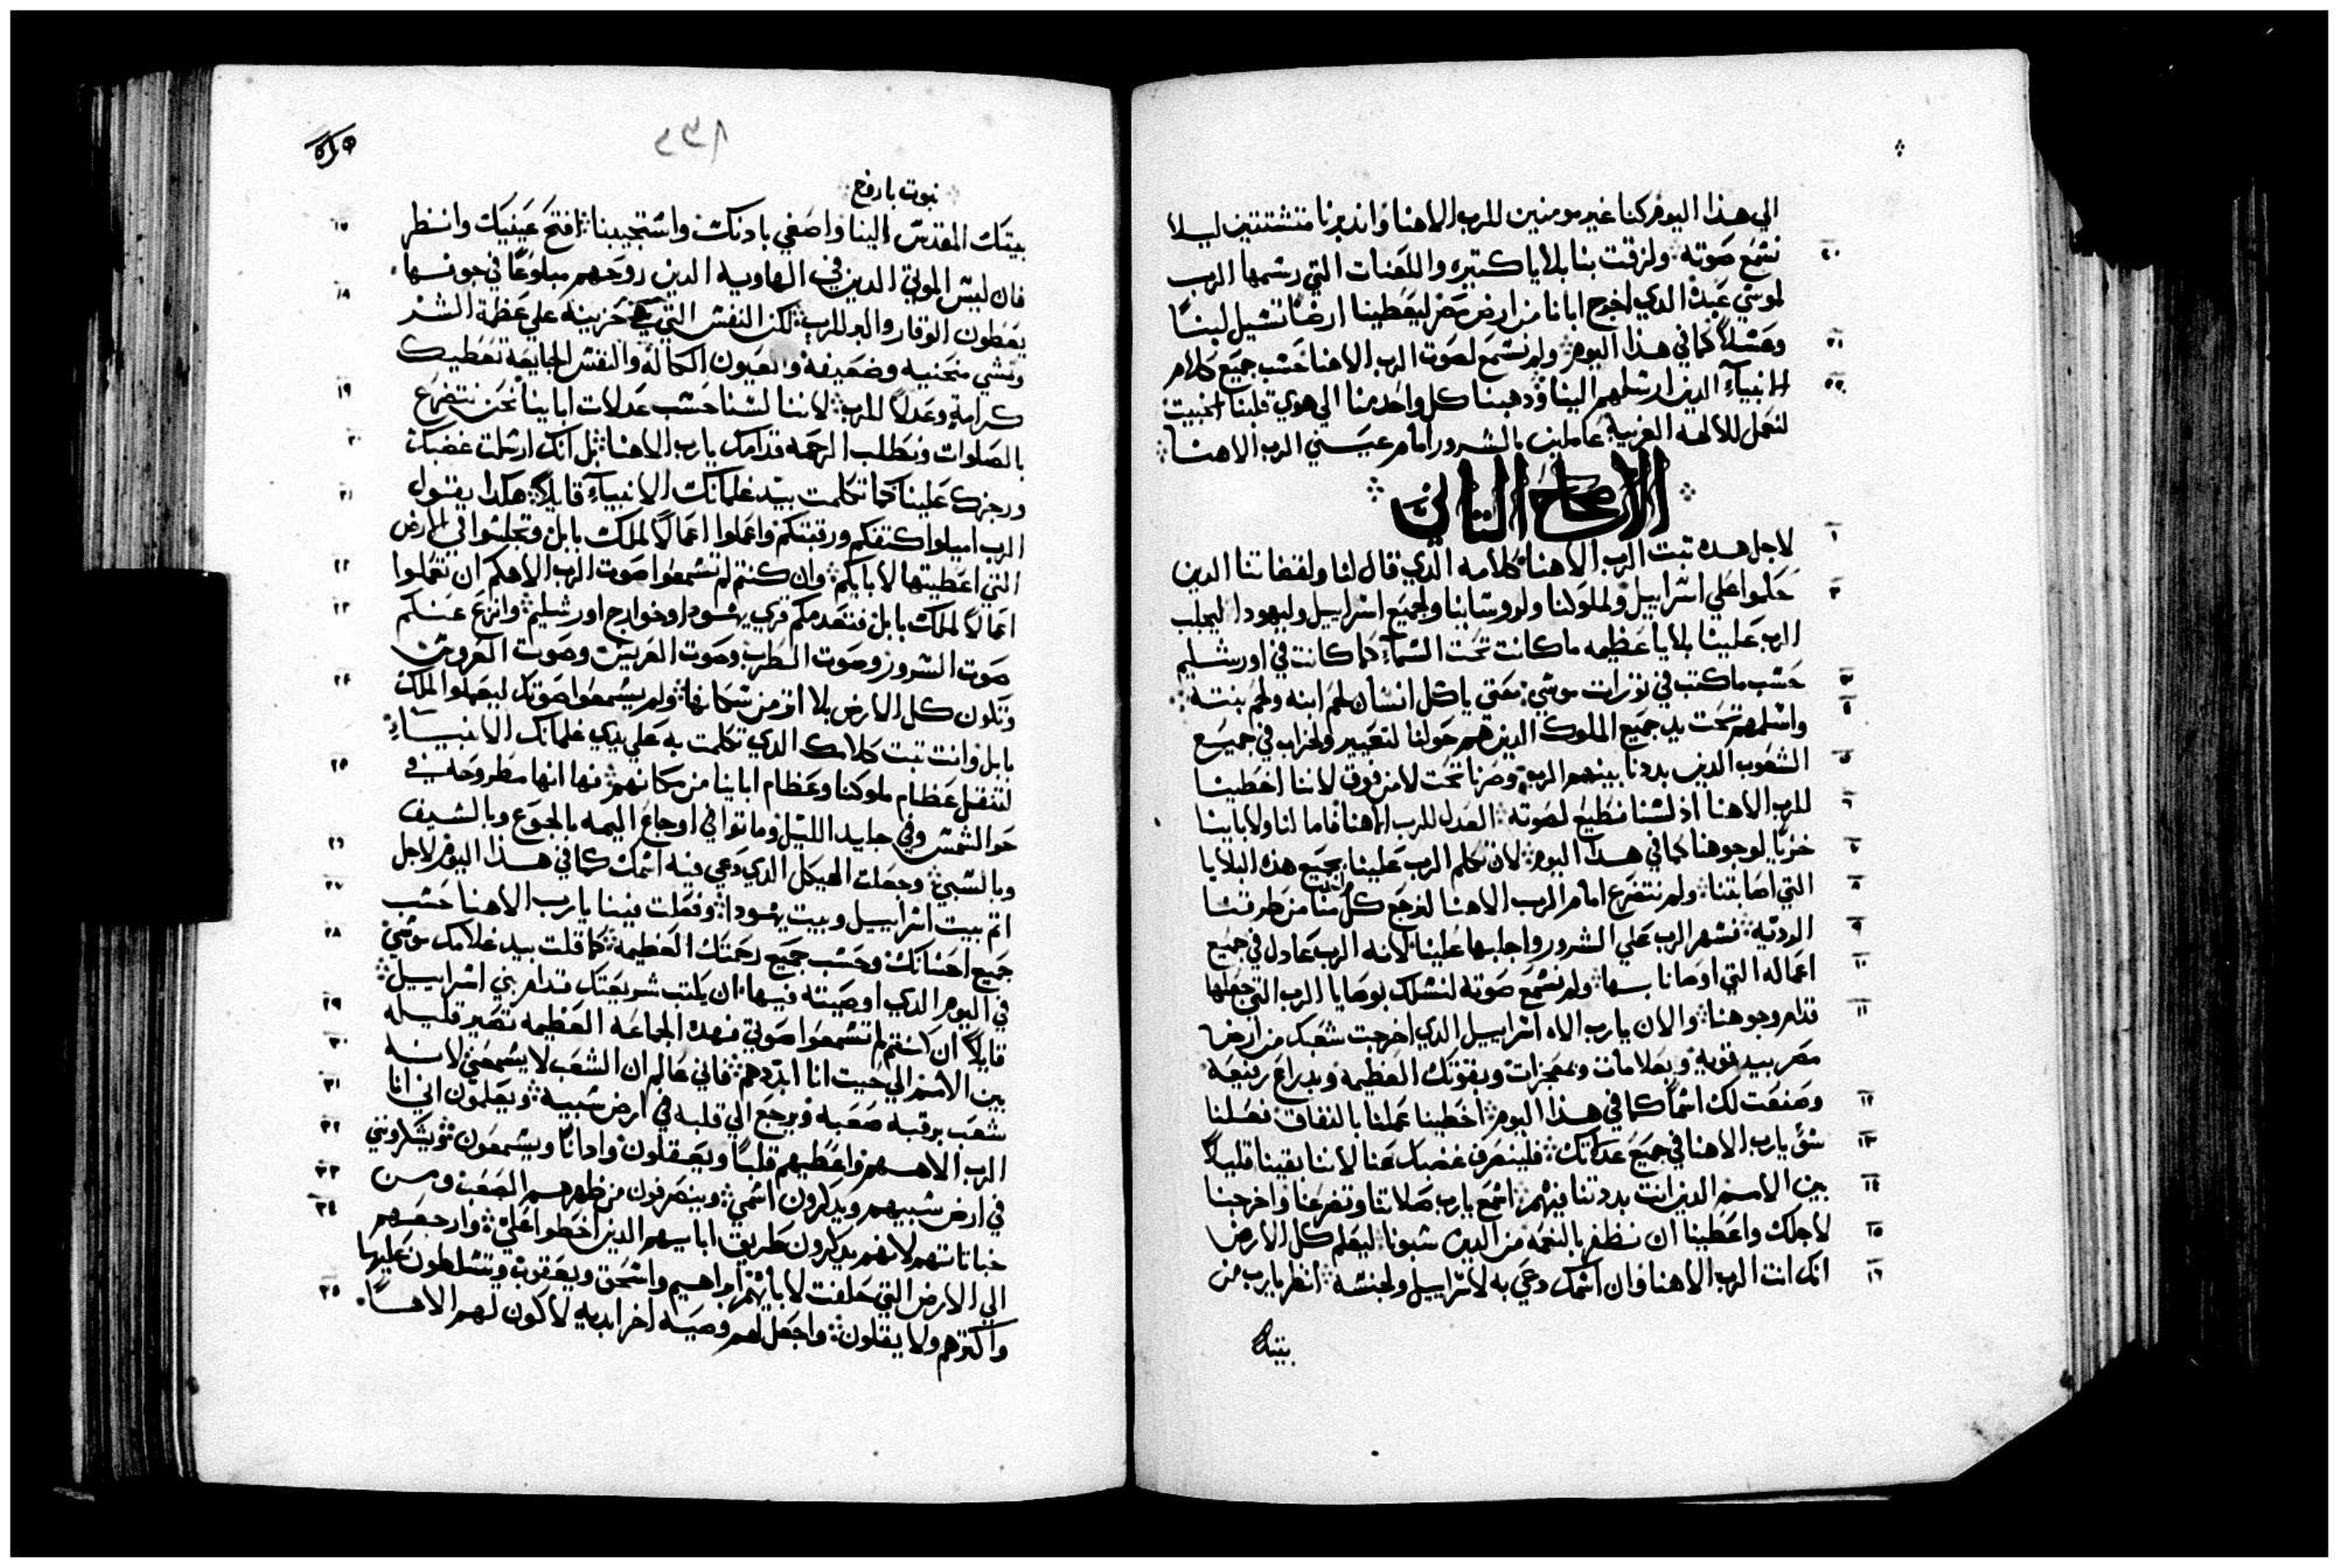 الي هذا اليوم كنا غير مومنين للرب الاهنا واندبرنا متشتتين ليلا
٢٠ نسمع صوته ولزقت بنا بلايا كتيره واللعنات التي رسمها الرب
لموسي عبده الدي اخرج ابانا من ارض مصر ليعطينا ارضا تسيل لبنا
٢١ وعسلا كما في هذا اليوم ولم نسمع لصوت الرب الاهنا حسب جميع كلام
٢٢ الانبيآء الدين ارسلهم الينا ودهبنا كل واحد منا الي هوي قلبنا الخبيت
لنعمل للالهه الغريبة عاملين بالشرور امام عيني الرب الاهنا
الاصحاح التاني
١ لاجل هده تبت الرب الاهنا كلامه الدي قال لنا ولقضاتنا الدين
٢ حكموا علي اسراييل ولملوكنا ولروسانا ولجميع اسراييل وليهودا ليجلب
الرب علينا بلايا عظيمه ما كانت تحت السمآء كما كانت في اورشليم
٣ حسب ما كتب في تورات موسي متي ياكل انسان لحم ابنه ولحم بنته
٤ واسلمهم تحت يد جميع الملوك الدين هم حولنا لتعيير ولخراب في جميع
٥ الشعوب الدين بددنا بينهم الرب وصرنا تحت لا من فوق لاننا اخطينا
٦ للرب الاهنا اذ لسنا نطيع لصوته العدل للرب الاهنا فاما لنا ولابابنا
٧ خزيا لوجوهنا كما في هدا اليوم لان تكلم الرب علينا بجميع هذه البلايا
٨ التي اصابتنا ولم نتضرع امام الرب الاهنا لنرجع كل منا من طرقتنا
٩ الرديه فسهر الرب علي الشرور واجلبها علينا لانه الرب عادل في جميع
١٠ اعماله التي اوصانا بها ولم نسمع صوته لنسلك بوصايا الرب التي جعلها
١١ قدام وجوهنا والان يارب الاه اسراييل الدي اخرجت شعبك من ارض
مصر بيد قويه وبعلامات وبمعجزات وبقوتك العظيمه وبدراع رفيعه
١٢ وصنعت لك اسما كما في هذا اليوم اخطينا عملنا بالنفاق فعلنا
١٣ سو يارب الاهنا في جميع عدلاتك فلينصرف غضبك عنا لاننا بقينا قليلا
١٤ بين الامم الدين انت بددتنا فيهم اسمع يارب صلاتنا وتضرعنا واخرجنا
١٥ لاجلك واعطينا ان نظفر بالنعمه من الدين سبونا ليعلم كل الارض
١٦ انك انت الرب الاهنا وان اسمك دعي به لاسراييل ولجنسه انظر يارب من
بيتك
نبوت باروخ
١٧ بيتك المقدس الينا واصغي بادنك واستجيبنا افتح عينيك وانظر
فان ليس الموتي الدين في الهاويه الدين روحهم مبلوعا في جوفها
١٨ يعطون الوقار والبر للرب لكن النفس التي هي حزينه علي عظمة الشر
وتمشي منحنيه وضعيفه والعيون الكاله والنفس الجايعه تعطيك
١٩ كرامة وعدلا للرب لاننا لسنا حسب عدلات اباينا نحن نتضرع
٢٠ بالصلوات ونطلب الرحمه قدامك يارب الاهنا بل انك ارسلت غضبك
٢١ ورجزك علينا كما تكلمت بيد غلمانك الانبيآء قايلا هكدا يقول
الرب اميلوا كتفكم ورقبتكم واعملوا اعمالا لملك بابل وتجلسوا في الارض
٢٢ التي اعطيتها لابايكم وان كنتم لم تسمعوا صوت الرب الاهكم ان تعملوا
٢٣ اعمالا لملك بابل فنعدمكم قري يهودا وخوارج اورشليم وانزع عنكم
صوت السرور وصوت الطرب وصوت العريس وصوت العروس
٢٤ وتكون كل الارض بلا اثر من سكانها ولم يسمعوا صوتك ليعملوا الملك
بابل وانت تبت كلامك الدي تكلمت به علي يدي غلمانك الانبيآء
٢٥ لتنقل عظام ملوكنا وعظام اباينا من مكانهم فها انها مطروحه في
حر الشمس وفي جليد الليل وماتوا في اوجاع اليمه بالجوع وبالسيف
٢٦ وبالسبي وجعلت الهيكل الدي دعي فيه اسمك كما في هذا اليوم لاجل
٢٧ اتم بيت اسراييل وبيت يهودا وفعلت فينا يارب الاهنا حسب
٢٨ جميع احسانك وحسب جميع رحمتك العظيمه كما قلت بيد غلامك موسي
في اليوم الدي اوصيته فيها ان يكتب شريعتك قدام بني اسراييل
٢٩ قايلا ان كنتم لم تسمعوا صوتي فهده الجماعه العظيمه تصير قليله
٣٠ بين الامم الي حيت انا ابددهم فاني عالم ان الشعب لا يسمعني لانه
٣١ شعب برقبه صعبه ويرجع الي قلبه في ارض سبيه ويعلمون اني انا
٣٢ الرب الاههم واعطيهم قلبا ويعقلون وادانا ويسمعون ويشكرونني
٣٣ في ارض سبيهم ويدكرون اسمي وينصرفون من ظهرهم الصعب ومن
٣٤ خباتاتهم لانهم يدكرون طريق اباييهم الدين اخطوا علي وارجعهم
الي الارض التي حلفت لابايهم ابراهيم واسحق ويعقوب ويتسلطون عليها
٣٥ واكترهم ولا يقلون واجعل لهم وصيه اخرا بديه لاكون لهم الاها